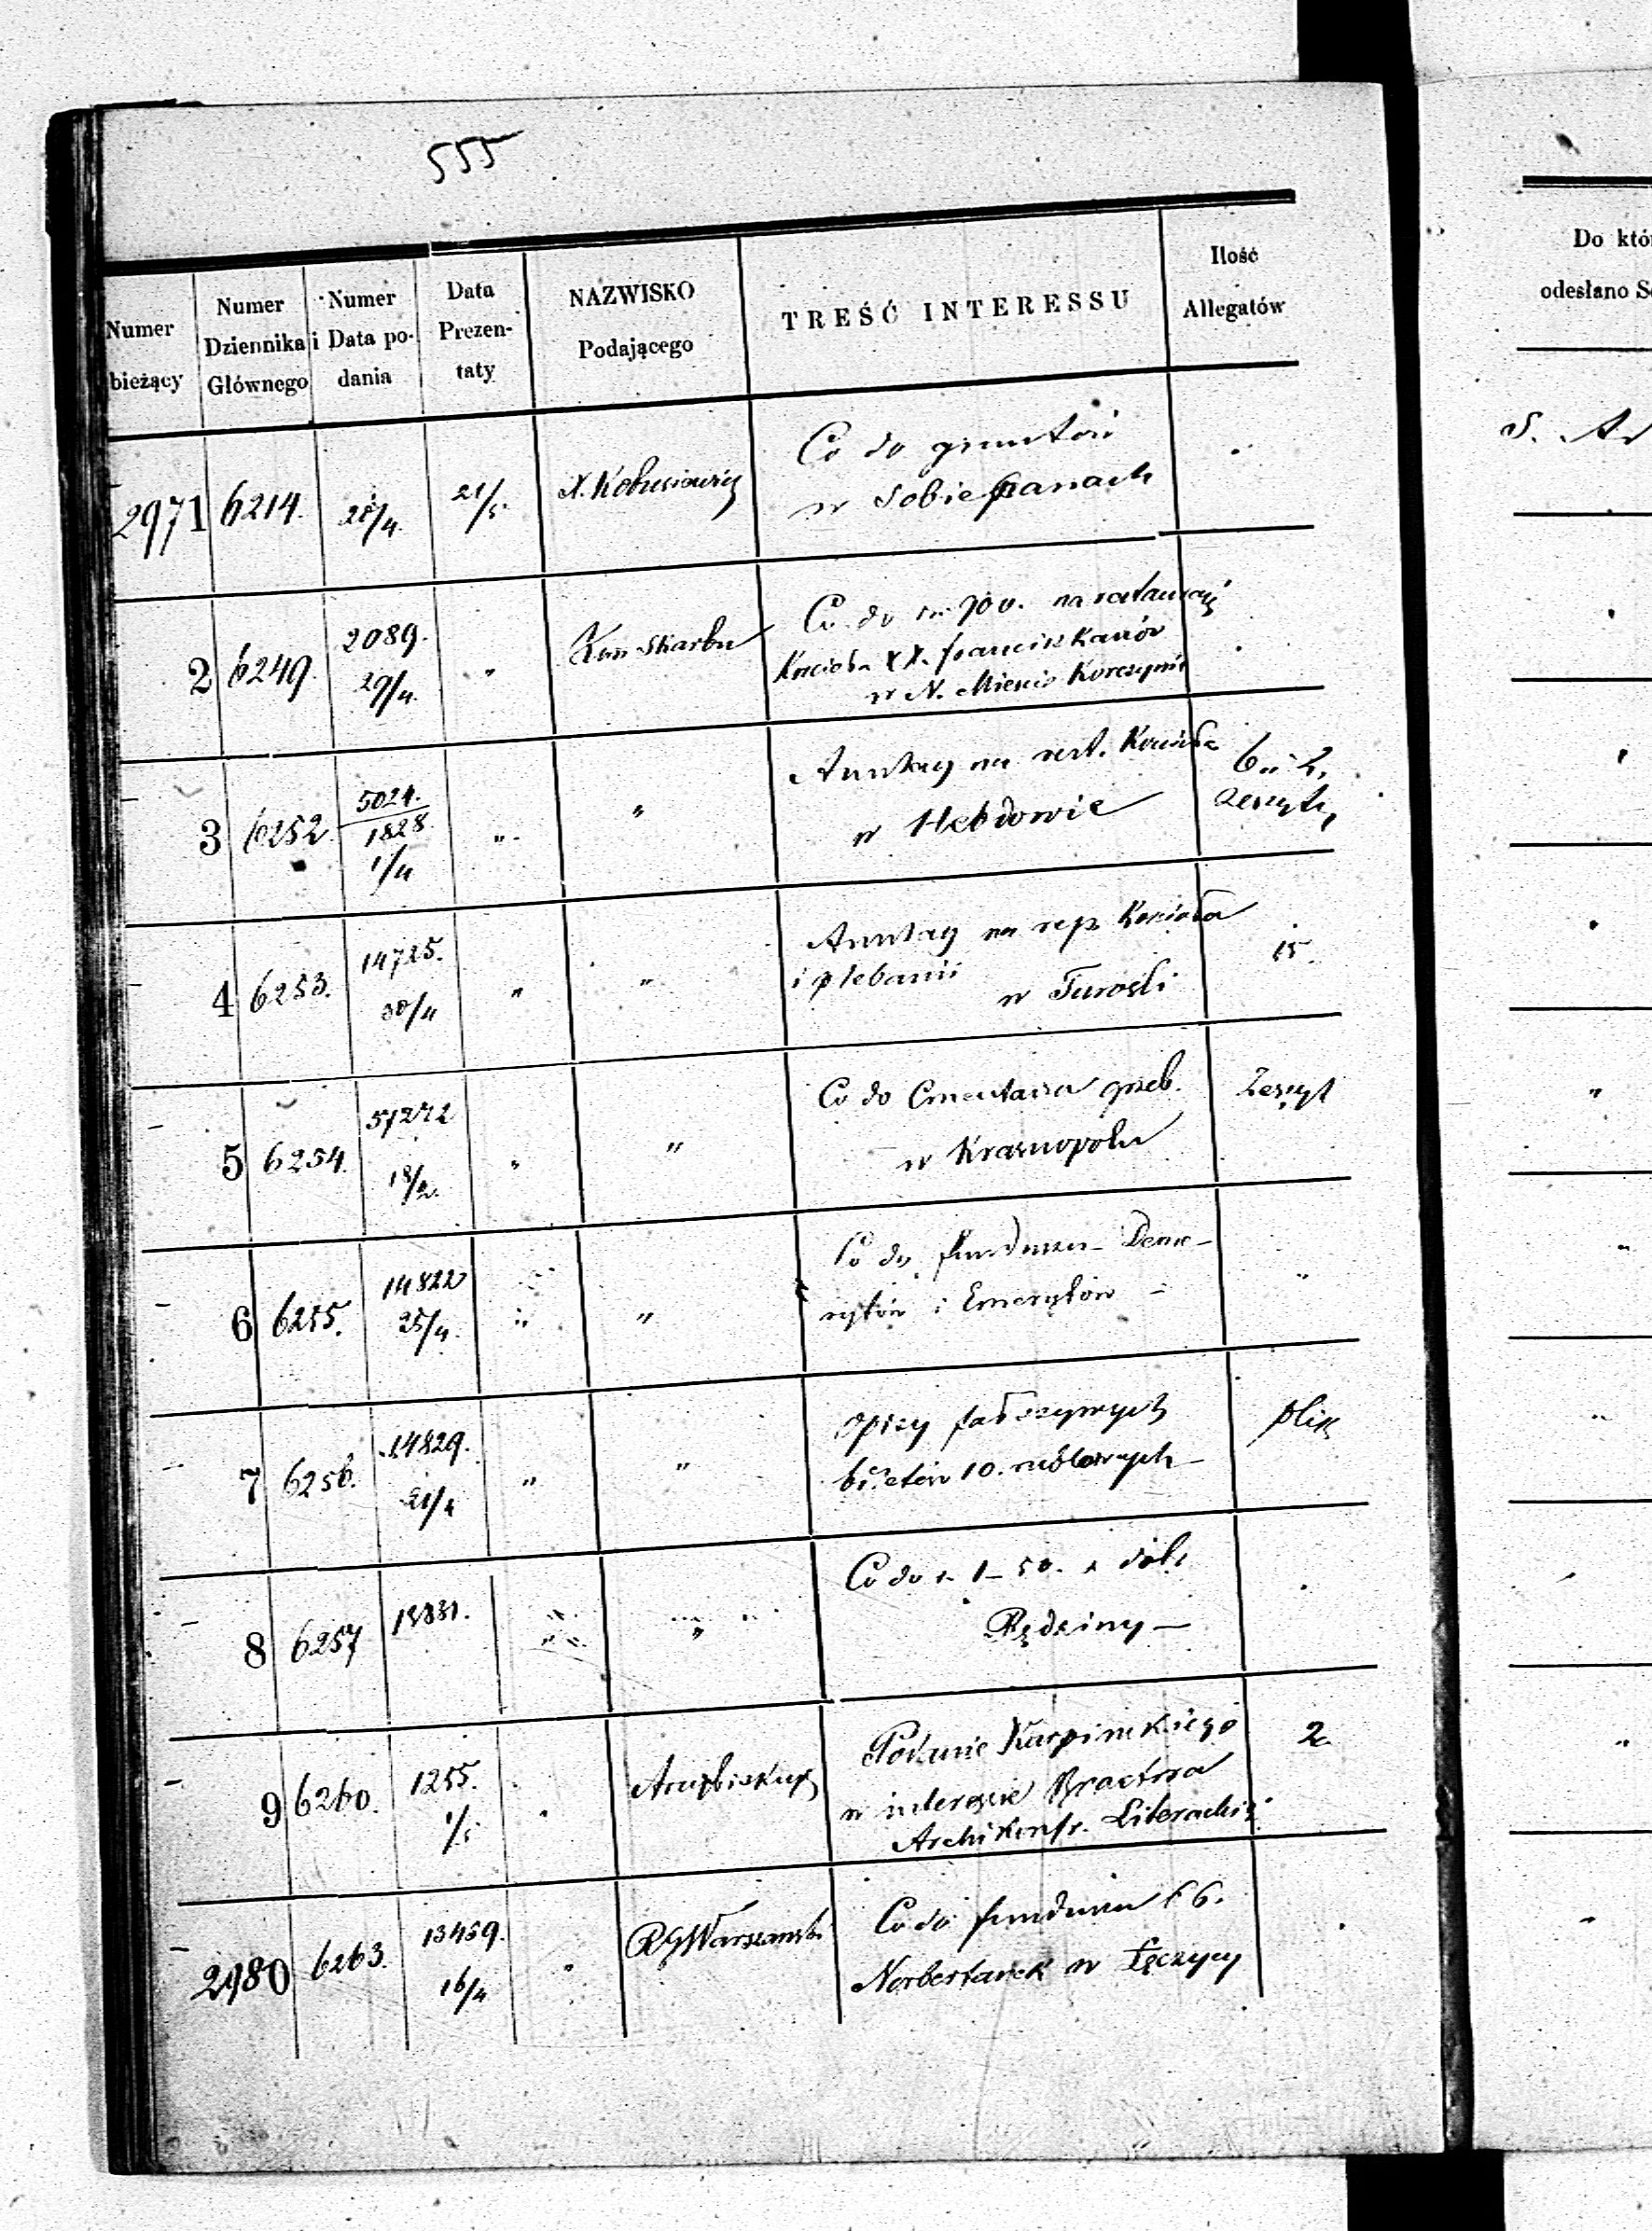 555
Numer bieżący
Numer Dziennika Głównego
Numer i Data podania
Data Prezentaty
NAZWISKO Podającego
TREŚĆ INTERESSU
Ilość Allegatów
Do któ
odesłano S
2971 6214. 21/5 Co do gruntów
w Sobiepanach
S.
2 6249. 2089. 29/4. " Kom Skarbu Co do 900. na
Kościoła XX. franciszkanów
w N. Mieście Korczynie
3 6252 5024. 1828 1/4 " " na rest. Kościoła
w Hebdowie
6 i 2. zeszyty
4 6253. 14725. 30/4 " " na rep Kościoła
i plebanii
w Turośli
15.
5 6254. 57272 18/2. " " Co do Cmentarza grzeb.
w Krasnopolu
Zeszyt
6 6255. 14822 25/4. " " Co do funduszu Deme-
rytów i Emerytów -
"
7 6256. 14829. 21/4 " " opisy fałszywych
biletów 10. rublowych
plik
8 6257 " " Co do 1-50. z dóbr
Rędziny -
9 6260. 1255. 1/5 " Arcybiskup Podanie Karpińskiego
w interesie Bractwa
Archikonfr. Literackiej
2
2980 6263. 13459. 16/4 " RGWarszawski Co do funduszu
Norbertanek w Łęczycy